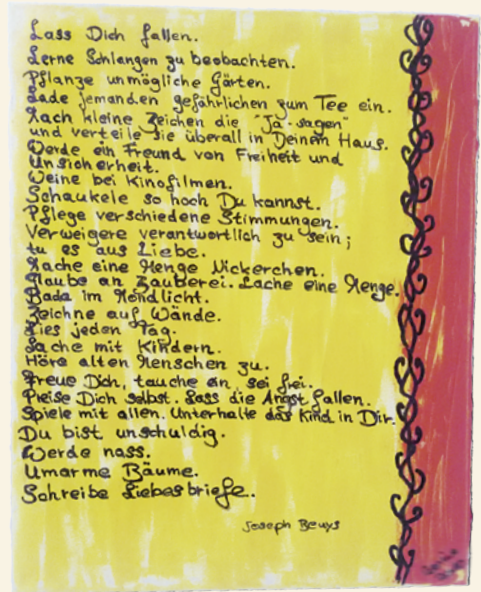 Lass Dich fallen.
Lerne Schlangen zu beobachten.
Pflanze unmögliche Gärten.
Lade jemanden gefährlichen zum Tee ein.
Mach kleine Zeichen die "Ja-sagen"
und verteile sie überall in Deinem Haus.
Werde ein Freund von Freiheit und
Unsicherheit.
Weine bei Kinofilmen.
Schaukele so hoch Du kannst.
Pflege verschiedene Stimmungen.
Verweigere verantwortlich zu sein;
tu es aus Liebe.
Mache eine Menge Nickerchen.
Glaube an Zauberei. Lache eine Menge.
Bada im Mondlicht.
Zeichne auf Wände.
Lies jeden Tag.
Lache mit Kindern.
Höre alten Menschen zu.
Freue Dich, tauche ein, sei frei.
Preise Dich selbst. Lass die Angst fallen.
Spiele mit allen. Unterhalte das Kind in Dir.
Du bist unschuldig.
Werde nass.
Umarme Bäume.
Schreibe Liebesbriefe.
Joseph Beuys